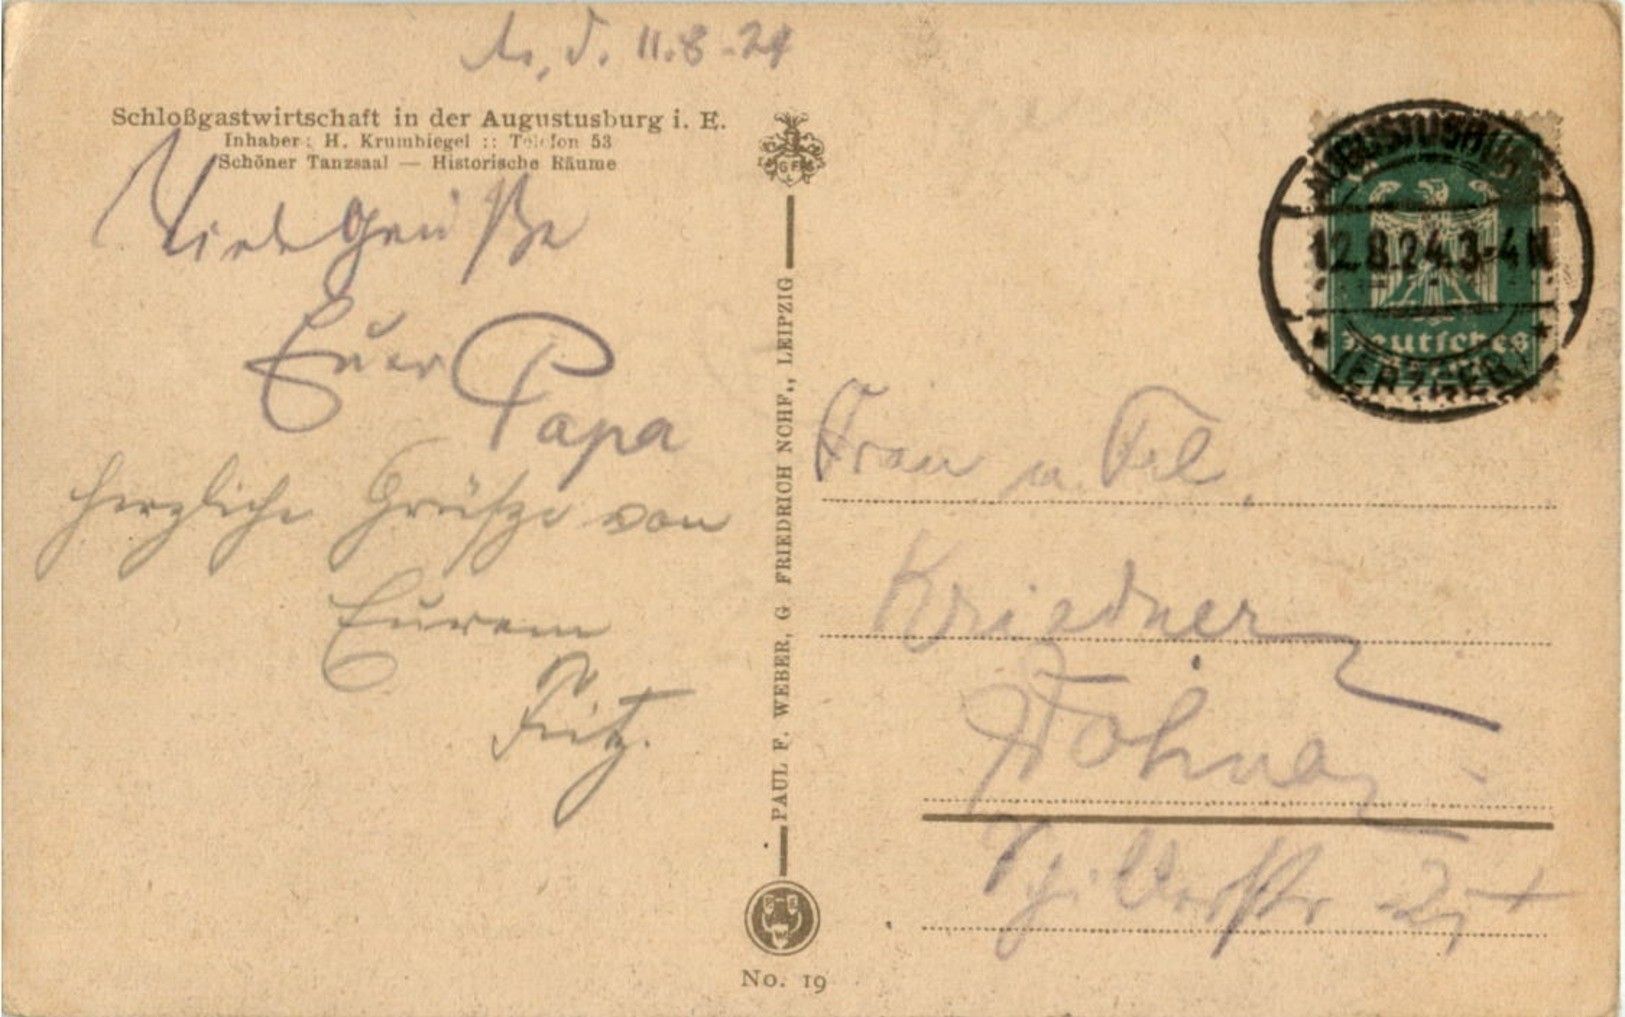 d. 11.8.24
Schloßgastwirtschaft in der Augustusburg i. E.
Inhaber: H. Krumbiegel :: Telefon 53
Schöner Tanzsaal — Historische Räume
Viele Grüße
Euer Papa
herzliche Grüße von
Eurem
Fritz.
PAUL F. WEBER, G. FRIEDRICH NCHF., LEIPZIG
No. 19
AUGUSTUSBURG
12.8.24.3-4N
* (ERZGEB.) *
Deutsches
Frau u. Frl.
Kriedner
Dohna